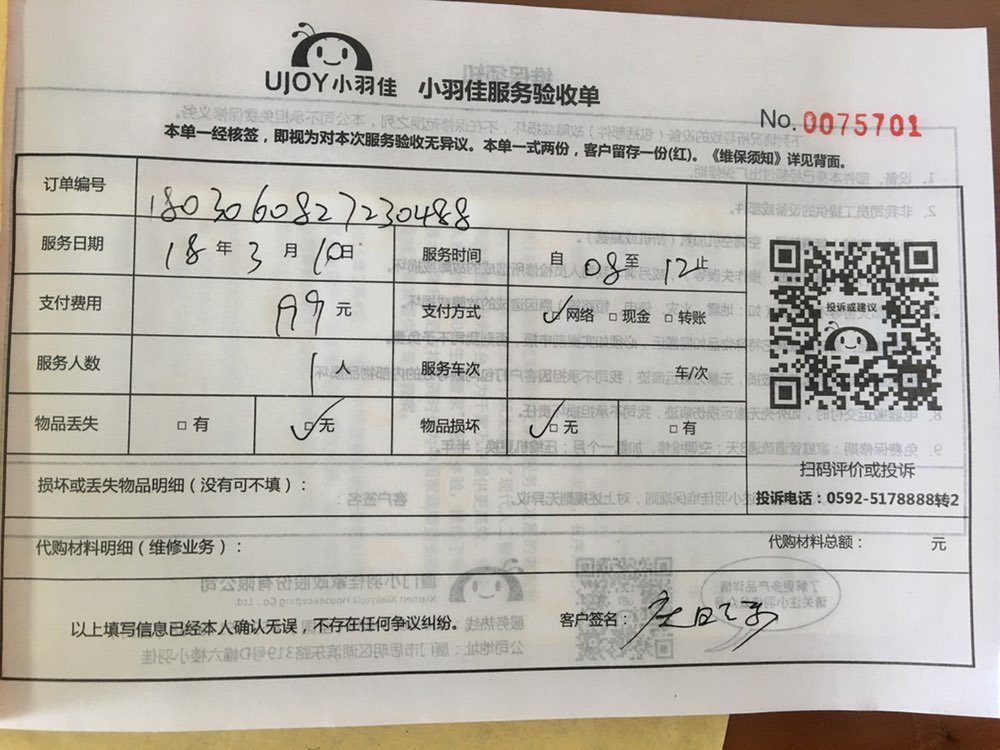 UJOY小羽佳 小羽佳服务验收单
No. 0075701
本单一经核签，即视为对本次服务验收无异议。本单一式两份，客户留存一份(红)。《维保须知》详见背面。
订单编号 1803060827230488
服务日期 18 年 3 月 10 日 服务时间 自 08 至 12 止
支付费用 元 支付方式 ☑网络 □现金 □转账
服务人数 1 人 服务车次 车/次
物品丢失 □有 ☑无 物品损坏 ☑无 □有
投诉或建议
扫码评价或投诉
投诉电话：0592-5178888转2
损坏或丢失物品明细（没有可不填）：
代购材料明细（维修业务）： 代购材料总额： 元
以上填写信息已经本人确认无误，不存在任何争议纠纷。 客户签名：